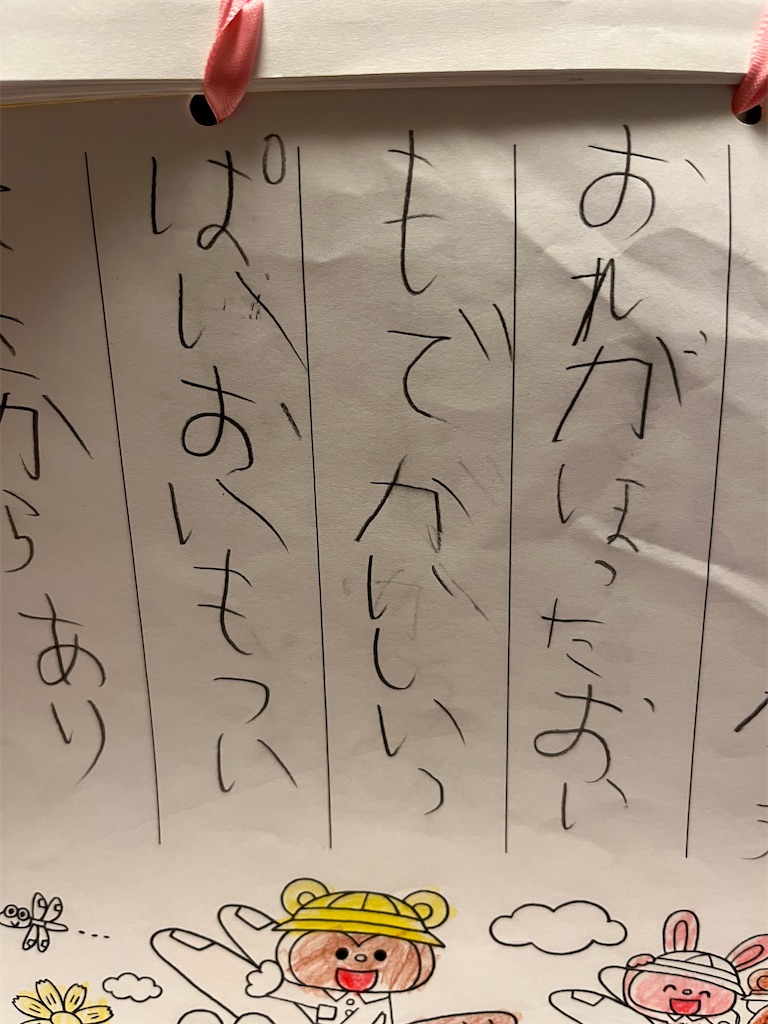 おれがほったおい
もでがいしいっ
ぱいおいもつい
からあり